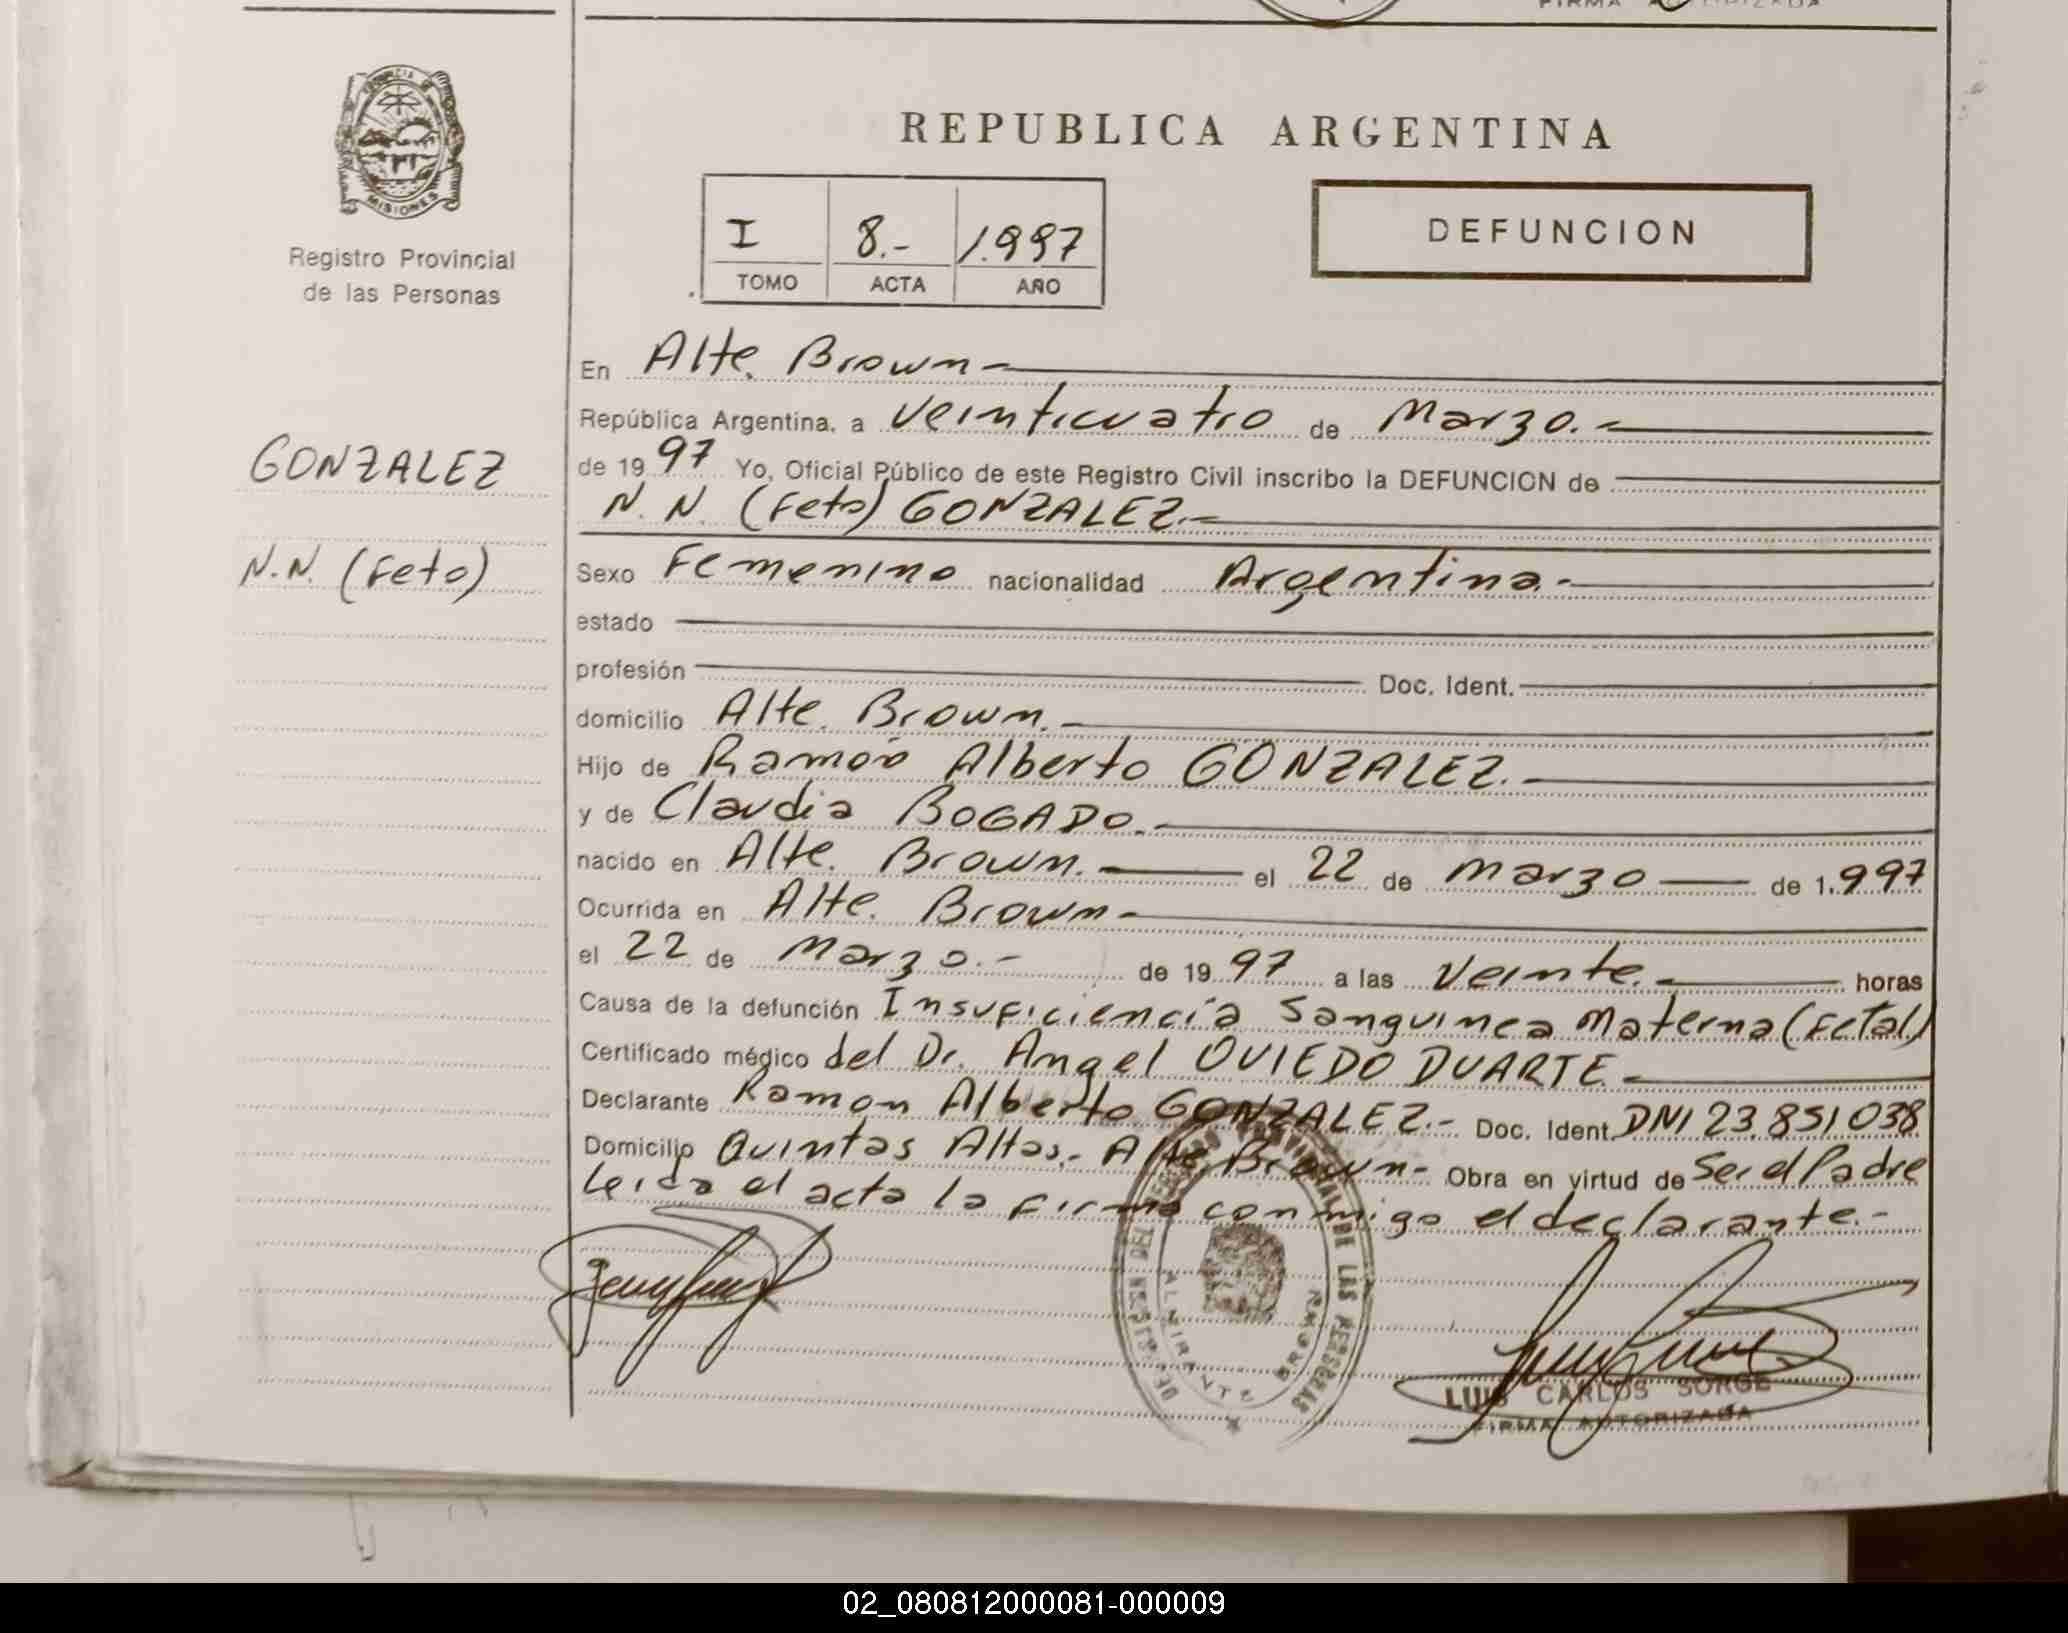 FIRMA AUTORIZADA
PROVINCIA DE
MISIONES
Registro Provincial
de las Personas
REPUBLICA ARGENTINA
I 8.- 1.997
TOMO ACTA AÑO
DEFUNCION
GONZALEZ
N.N. (Feto)
En Alte. Brown-
República Argentina, a Veinticuatro de Marzo.-
de 19 97 Yo, Oficial Público de este Registro Civil inscribo la DEFUNCION de
N.N. (Feto) GONZALEZ.-
Sexo Femenino nacionalidad Argentina.-
estado
profesión Doc. Ident.
domicilio Alte. Brown.-
Hijo de Ramón Alberto GONZALEZ.
y de Claudia BOGADO.-
nacido en Alte. Brown. el 22 de Marzo de 1.997
Ocurrida en Alte. Brown-
el 22 de Marzo.- de 19 97 a las Veinte. horas
Causa de la defunción Insuficiencia Sanguinea Materna (Fetal)
Certificado médico del Dr. Angel OVIEDO DUARTE.-
Declarante Ramon Alberto GONZALEZ.- Doc. Ident. DNI 23.851038
Domicilio Quintas Altas.- Alte. Brown- Obra en virtud de Ser el Padre
Leida el acta la firma conmigo el declarante.-
PROVINCIAL DE LAS PERSONAS
ALMIRANTE BROWN
LUIS CARLOS SORGE
FIRMA AUTORIZADA
02_080812000081-000009